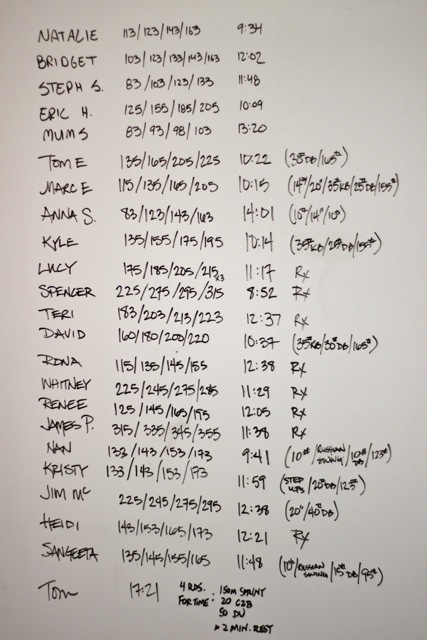 NATALIE 113/123/143/163 9:34
BRIDGET 103/123/133/143/163 12:02
STEPH S. 83/103/123/133 11:48
ERIC H. 125/155/185/205 10:09
MUMS 83/93/98/103 13:20
TOM E 135/165/205/225 10:22 (30#DB/165#)
MARC E 115/135/165/205 10:15 (14#/20"/35KB/25#DB/155#)
ANNA S. 83/123/143/163 14:01 (10#/14"/10#)
KYLE 135/155/175/195 10:14 (35#KB/25#DB/155#)
LUCY 175/185/205/215x3 11:17 Rx
SPENCER 225/275/295/315 8:52 Rx
TERI 183/203/213/223 12:37 Rx
DAVID 160/180/200/220 10:37 (35#KB/30#DB/165#)
RONA 115/135/145/155 12:38 Rx
WHITNEY 225/245/275/285 11:29 Rx
RENEE 125/145/165/195 12:05 Rx
JAMES P. 315/335/345/355 11:38 Rx
NAN 133/143/153/173 9:41 (10#/RUSSIAN SWING/10#DB/123#)
KRISTY 133/143/153/173 11:59 (STEP UPS/20#DB/123#)
JIM MC 225/245/275/295 12:38 (20"/40#DB)
HEIDI 143/153/165/173 12:21 Rx
SANGEETA 135/145/155/165 11:48 (10#/RUSSIAN SWING/15#DB/95#)
Tom 17:21 4 RDS. FOR TIME: 150M SPRINT
20 G2B
50 DU
* 2 MIN. REST